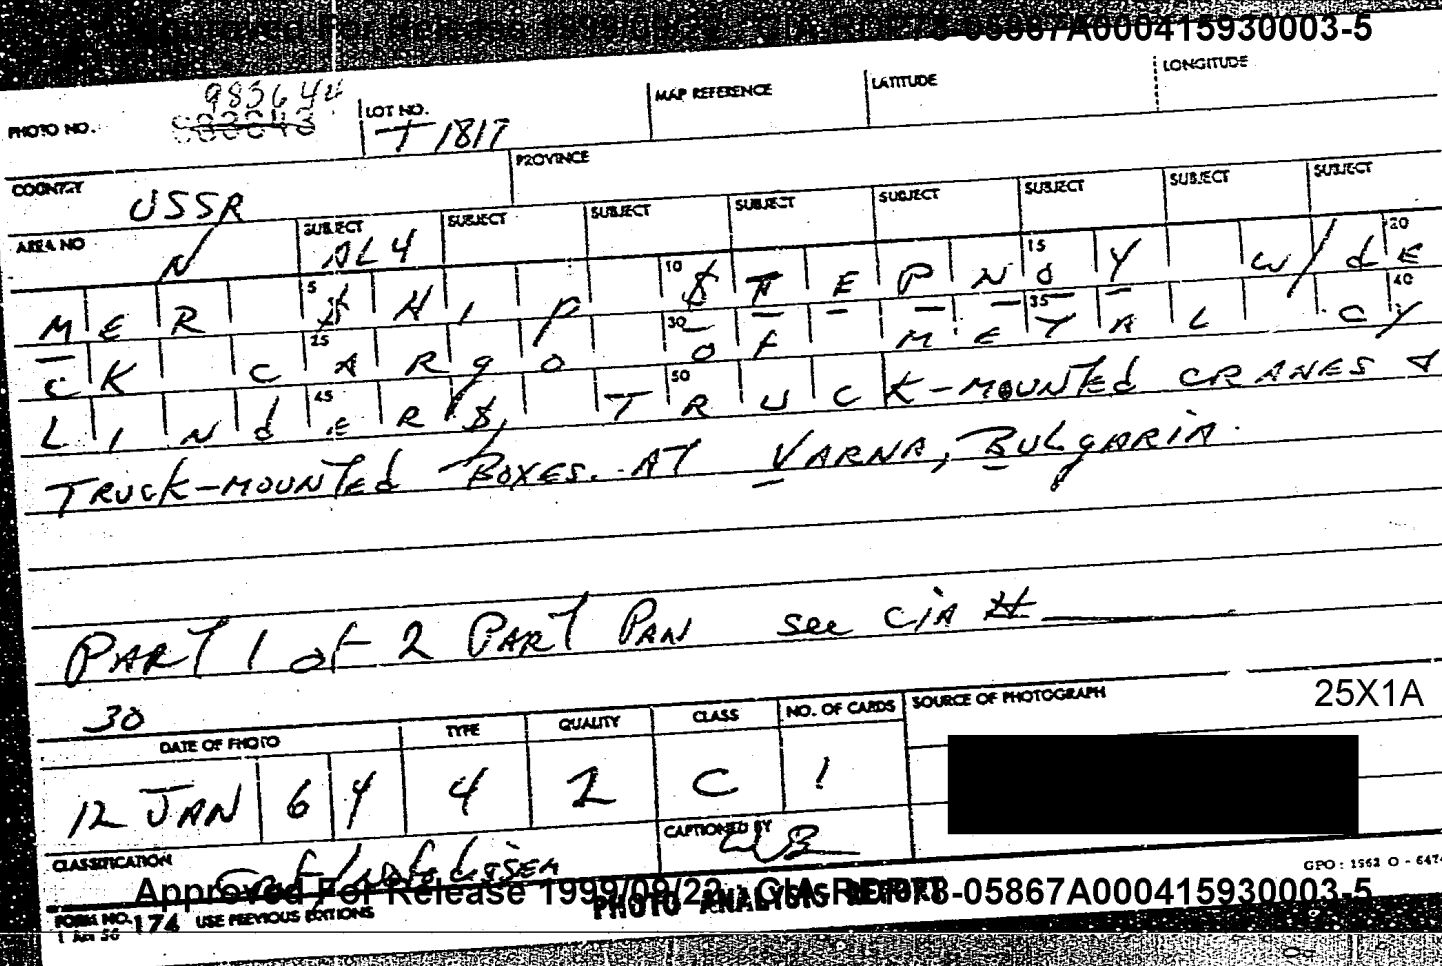 Approved For Release 1999/09/22 : CIA-RDP73-05867A000415930003-5
PHOTO NO. 983644
LOT NO. T 1817
MAP REFERENCE
LATITUDE
LONGITUDE
COUNTRY USSR
PROVINCE
AREA NO N
SUBJECT AL4
SUBJECT
SUBJECT
SUBJECT
SUBJECT
SUBJECT
SUBJECT
SUBJECT
MER SHIP STEPNOY w/dE
CK CARgO OF METAL CY
LINdERS, TRUCK-MOUNTEd CRANES &
TRUCK-MOUNTEd BOXES. AT VARNA, BULgARIA.
PART 1 of 2 PART PAN see CIA #
30
25X1A
DATE OF PHOTO 12 JAN 64
TYPE 4
QUALITY 2
CLASS C
NO. OF CARDS 1
SOURCE OF PHOTOGRAPH
CLASSIFICATION
CAPTIONED BY
GPO : 1962 O - 647
Approved For Release 1999/09/22 : CIA-RDP73-05867A000415930003-5
FORM NO. 174 USE PREVIOUS EDITIONS
PHOTO ANALYSIS REPORT
1 56